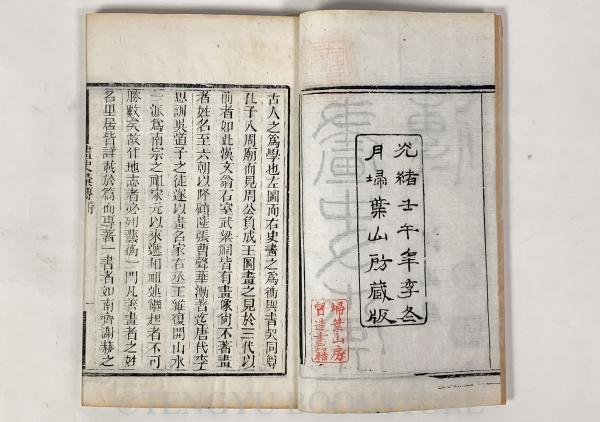 光緒壬午年季冬
月埽葉山房藏版
埽葉山房
督造書籍
古人之爲學也左圖而右史畫之爲術與書契同尊
孔子入周廟而見周公負成王圖畫之見於三代以
前者如此漢文翁石室武梁祠皆有畫像尙不著畫
者姓名至六朝以降顧陸張曹聲華漸著迄唐代李
思訓吳道子之徒遂以畫名家右丞王維復開山水
一派爲南宗之祖宋元以來遞相祖述繼起者不可
勝數矣故作地志者必列藝術一門凡善畫者之姓
名里居皆詳載於篇而專著一書者如南齊謝赫之
畫史彙傳